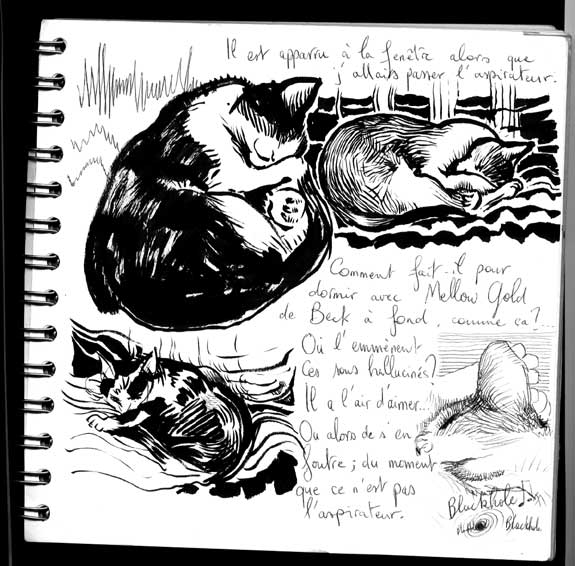 Il est apparu à la fenêtre alors que
j'allais passer l'aspirateur.
Comment fait-il pour
dormir avec Mellow Gold
de Beck à fond, comme ça?...
Où l'emmènent
ces sons hallucinés?
Il a l'air d'aimer...
Ou alors de s'en
foutre ; du moment
que ce n'est pas
l'aspirateur.
Blackhole
Blackhole